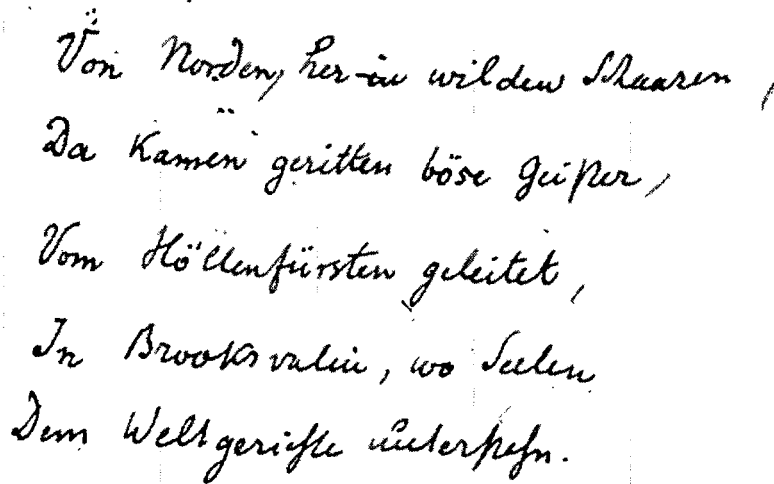 Von Norden, her in wilden Schaaren,
Da kamen geritten böse Geister,
Vom Höllenfürsten geleitet,
In Brooksvalin, wo Seelen
Dem Weltgerichte unterstehn.